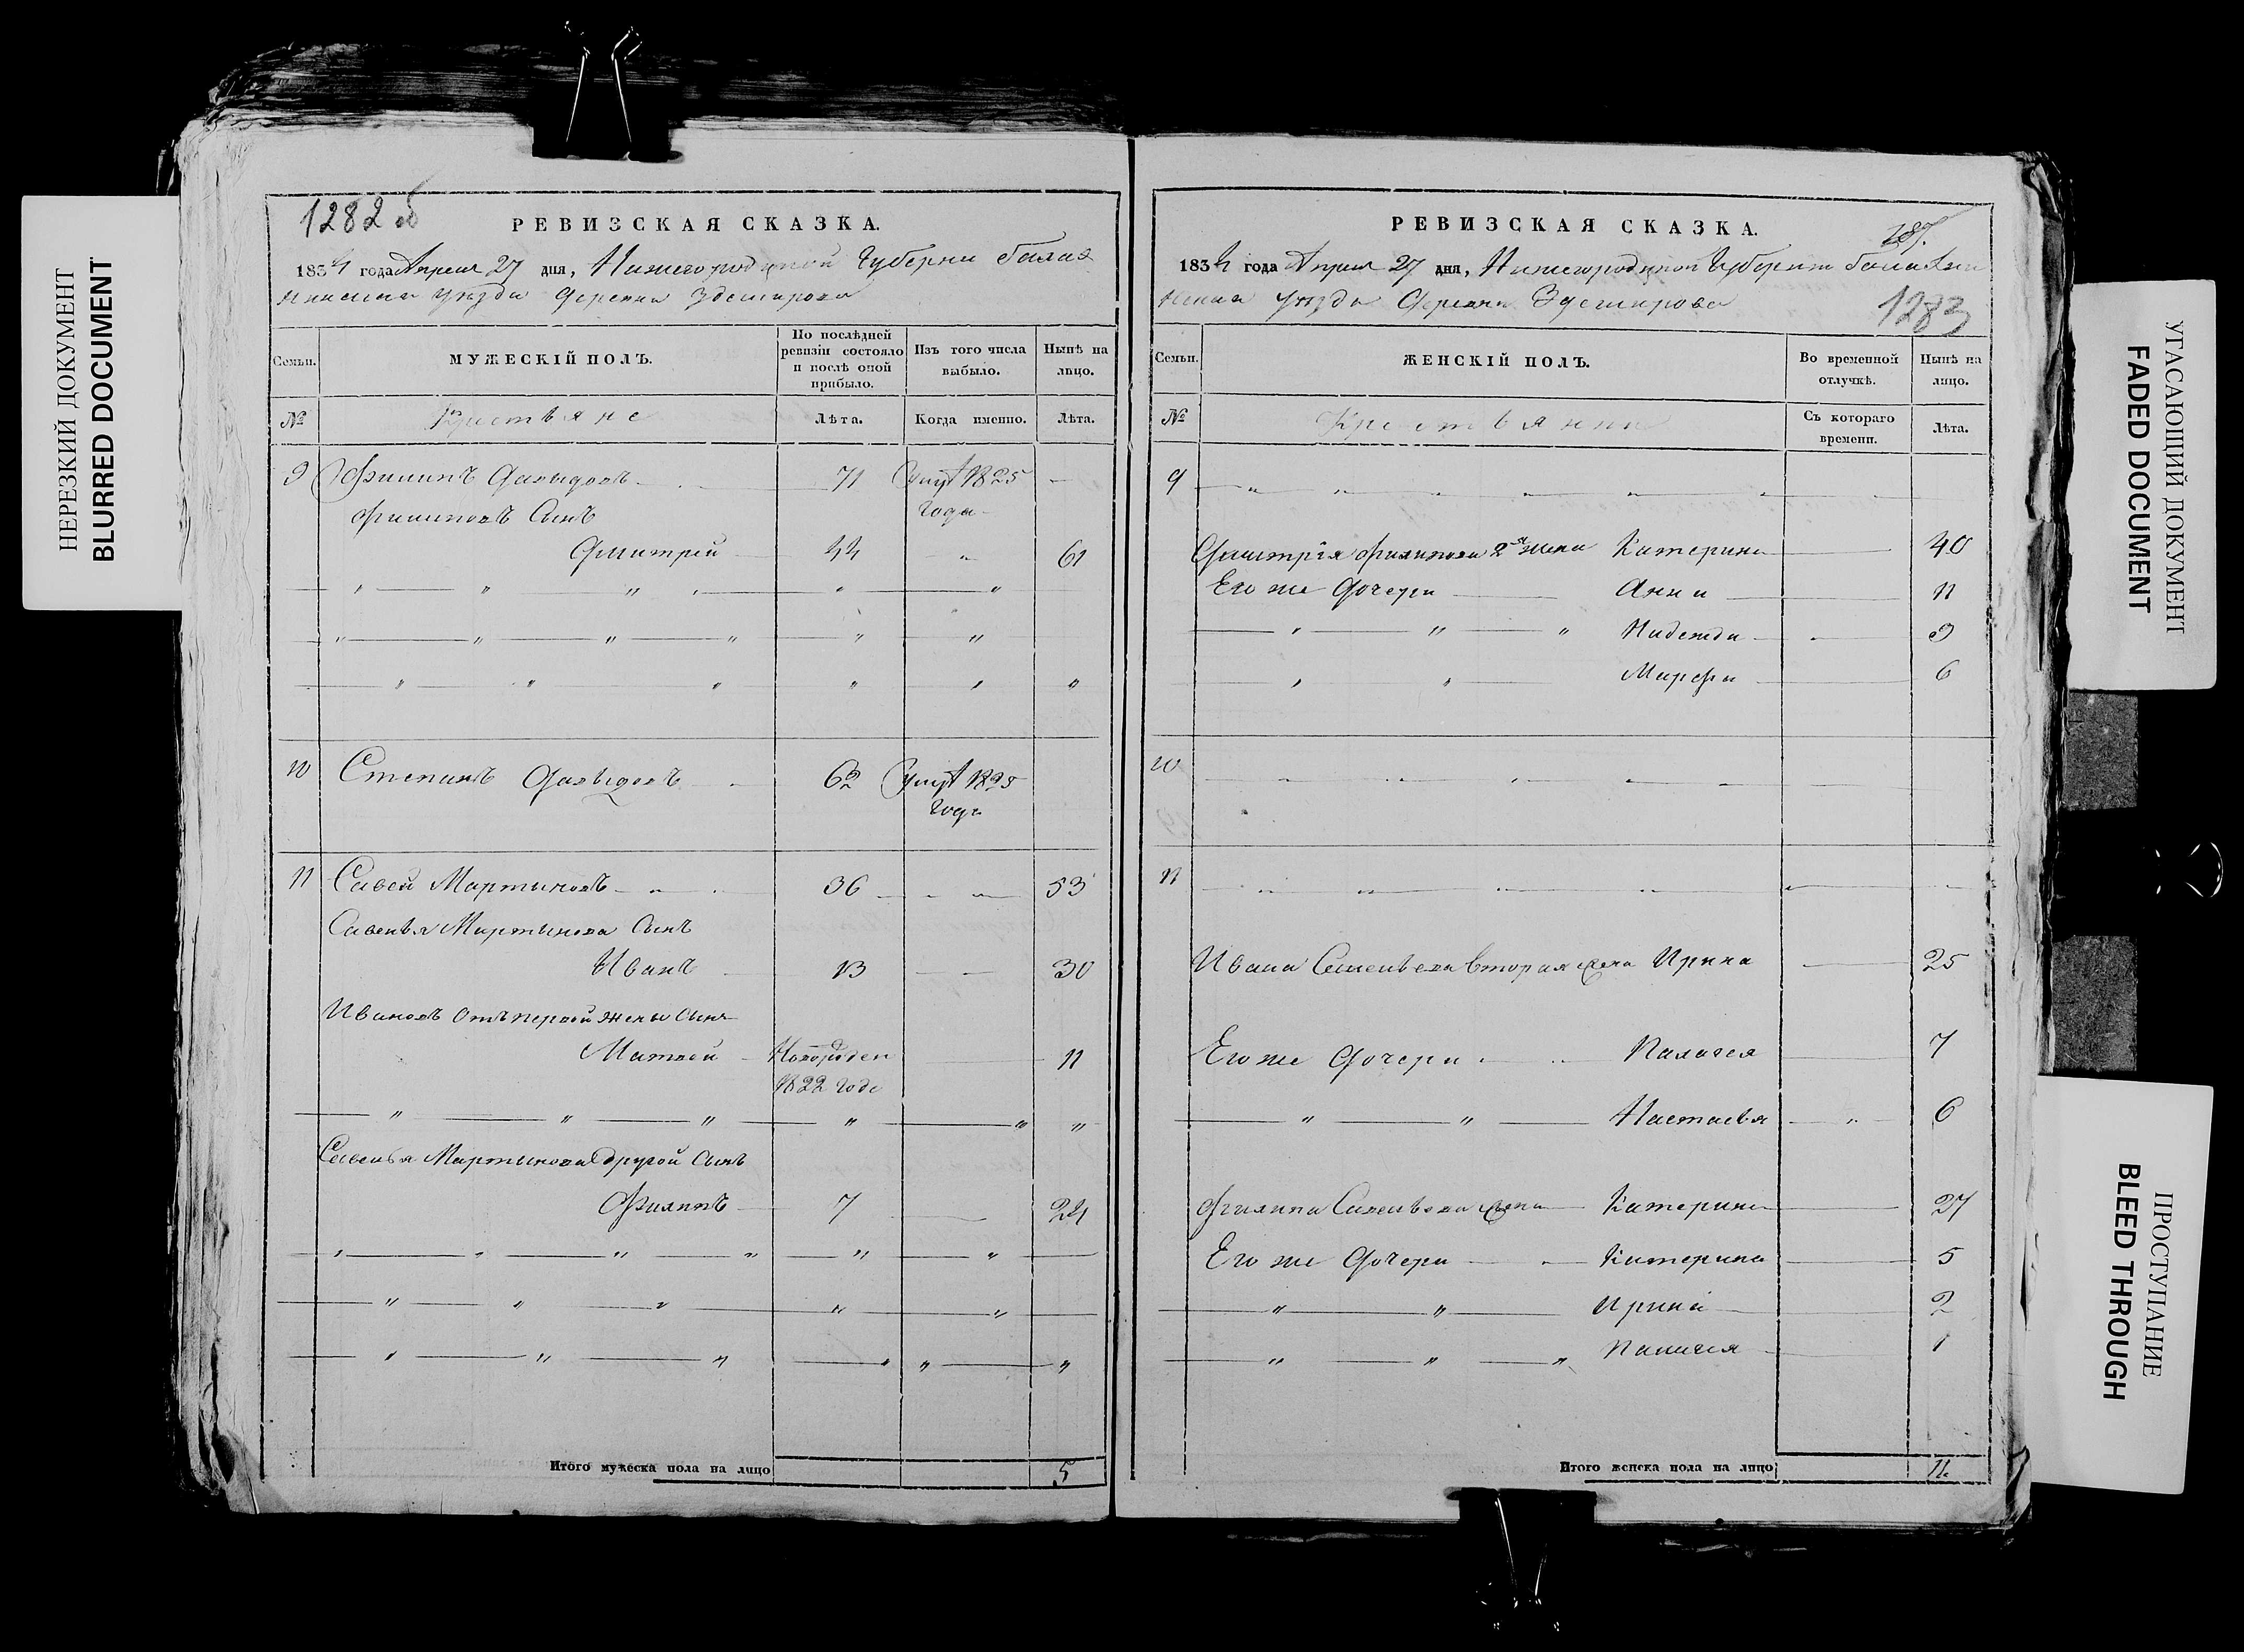 НЕРЕЗКИЙ ДОКУМЕНТ
BLURRED DOCUMENT
1282 об
РЕВИЗСКАЯ СКАЗКА.
1834 года Апреля 27 дня, Нижегородской Губернии Балах
нинскаго уезда деревни
Семьи.
МУЖЕСКІЙ ПОЛЪ.
По послѣдней ревизіи состояло и послѣ оной прибыло.
Изъ того числа выбыло.
Нынѣ на лицо.
№
Крестьяне
Лѣта.
Когда именно.
Лѣта.
9 Филипъ Давыдовъ 71 1825
Филиповъ Сынъ года
Дмитрей 44 61
10 Степанъ Давыдовъ 62 1825
года
11 Савей Мартиновъ 36 53
Савелья Мартинова Сынъ
Иванъ 13 30
Ивановъ отъ первой жены сынъ
Матвей Новорожден 11
1822 годе
Савелья Мартинова другой сынъ
Филипъ 7 24
Итого мужеска пола на лицо 5
РЕВИЗСКАЯ СКАЗКА.
187.
1834 года Апреля 27 дня, Нижегородской Губернии Балахни
нскаго уезда деревни
1283
Семьи.
ЖЕНСКІЙ ПОЛЪ.
Во временной отлучкѣ.
Нынѣ на лицо.
№
Крестьянки
Съ котораго времени.
Лѣта.
9
Дмитрія Филипова 2я жена Катерина 40
Его же дочери Анна 11
Надежда 9
Марфа 6
10
11
Ивана Савельева вторая жена Ирина 25
Его же дочери Палагея 7
Настасья 6
Филипа Савельева жена Катерина 27
Его же дочери Катерина 5
Ирина 2
Палагея 1
Итого женска пола на лицо 11.
УГАСАЮЩИЙ ДОКУМЕНТ
FADED DOCUMENT
ПРОСТУПАНИЕ
BLEED THROUGH